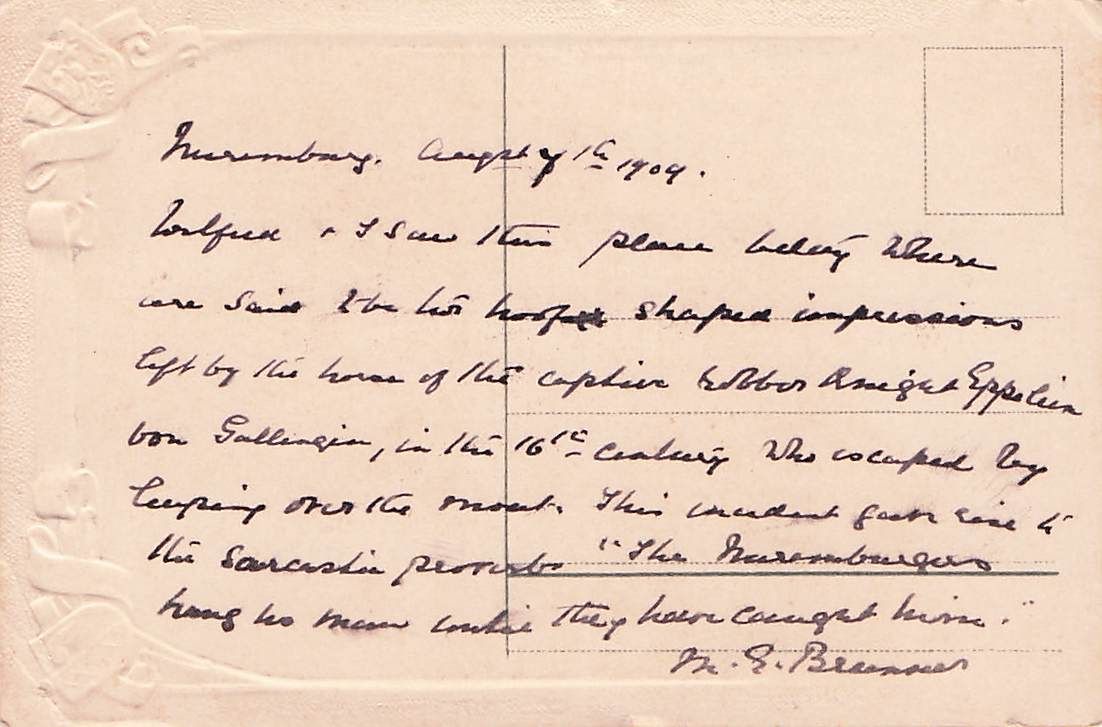 Nuremburg. August 7th 1909.
Wilfred & I saw this place today where
are said to be two hoof shaped impressions
left by the horse of the captive robber Knight Eppelein
von Gallingen, in the 16th century who escaped by
leaping over the moat. This incident gave rise to
the sarcastic proverb "The Nuremburgers
hang no man until they have caught him."
M. E. Brunner